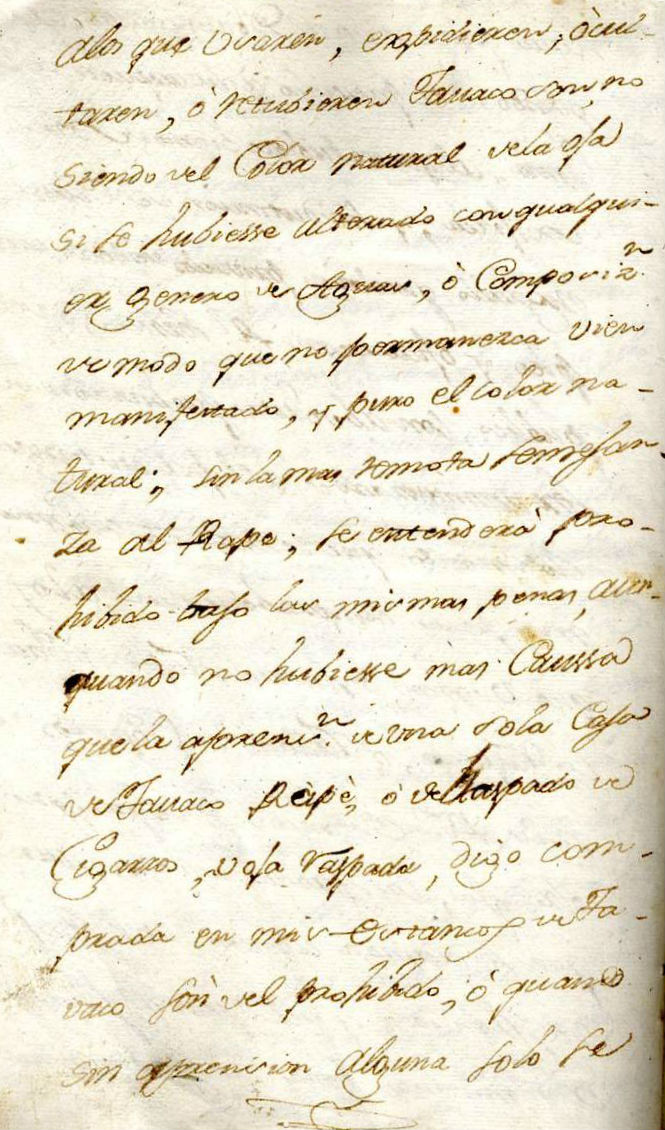 alos que Usaren, expidieren, òcul-
taren, ò retubieren Tauaco son, no
siendo del Color natural dela oja
si se hubiesse alterado con qualqui-
er genero de Aguas, ò Composiz.n
de modo que no permanezca vien
manifestado, y puro el color na-
tural; sin la mas remota semejan-
za al Rape; se entenderà pro-
hibido bajo las mismas penas, aun-
quando no hubiesse mas Caussa
que la aprens.n de una sola Caja
de Tauaco Rapè, ò de Raspado de
Cigarros, u oja raspada, digo com-
prada en mis Estancos de Ta-
vaco son del prohibido, ò quando
sin aprension alguna solo se